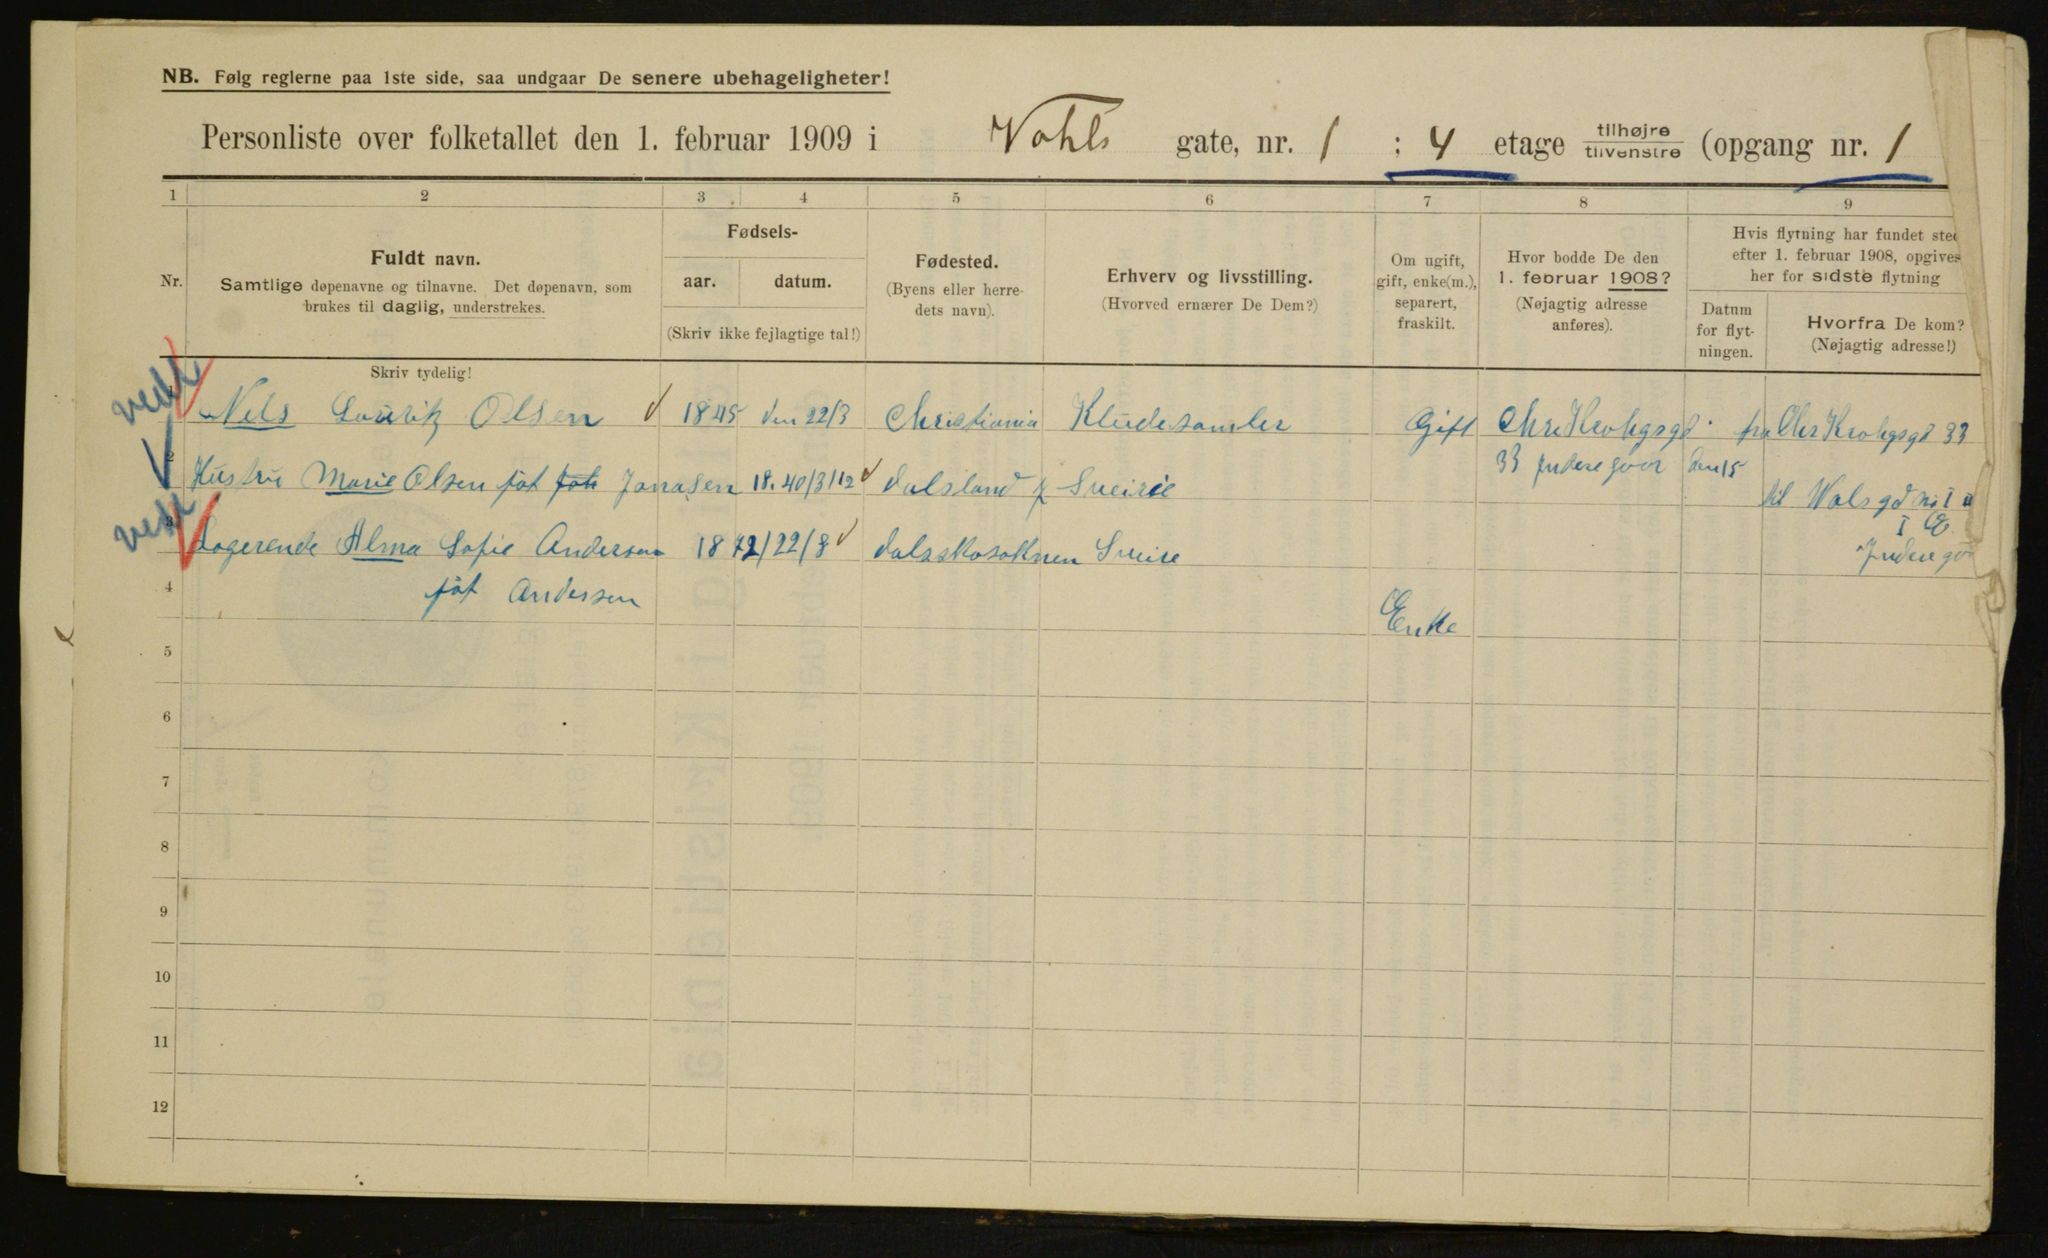 NB. Følg reglerne paa 1ste side, saa undgaar De senere ubehageligheter!
Personliste over folketallet den 1. februar 1909 i Vahls gate, nr. 1 ; 4 etage tilhøjre tilvenstre (opgang nr. 1
1 2 3 4 5 6 7 8 9
Nr.
Fuldt navn.
Samtlige døpenavne og tilnavne. Det døpenavn, som
brukes til daglig, understrekes.
Fødsels-
aar. datum.
(Skriv ikke fejlagtige tal!)
Fødested.
(Byens eller herre-
dets navn).
Erhverv og livsstilling.
(Hvorved ernærer De Dem?)
Om ugift,
gift, enke(m.),
separert,
fraskilt.
Hvor bodde De den
1. februar 1908?
(Nøjagtig adresse
anføres).
Hvis flytning har fundet sted
efter 1. februar 1908, opgives
her for sidste flytning
Datum
for flyt-
ningen.
Hvorfra De kom?
(Nøjagtig adresse!)
Skriv tydelig!
1 Nels Lauritz Olsen 1845 den 22/3 Christiania Kludesamler Gift Chr Krohgsgd. fra Chr Krohgsgd 33
33 Indregaar den 15
2 Hustru Marie Olsen føt Jonasen 18.40/3/12 dalsland Sveirie til Valsgd no 1
3 Logerende Alma Sofie Andersen 1872/22/8 dalsskosoknen Sveire
4 føt Andersen
Enke
5
6
7
8
9
10
11
12